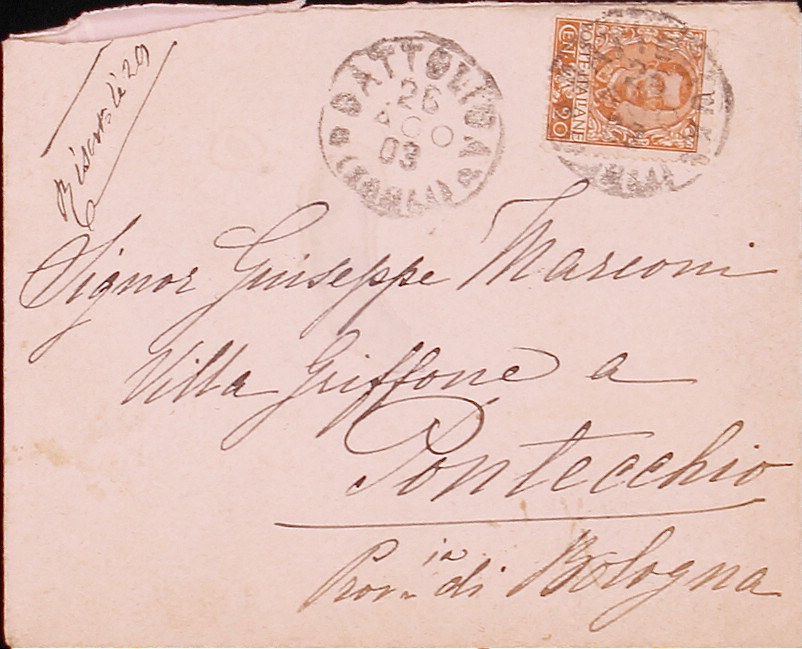 CATTOLICA
26
03
(FORLÌ)
POSTE ITALIANE
CENT. 20
Signor Giuseppe Marconi
Villa Griffone a
Pontecchio
Prov.ia di Bologna